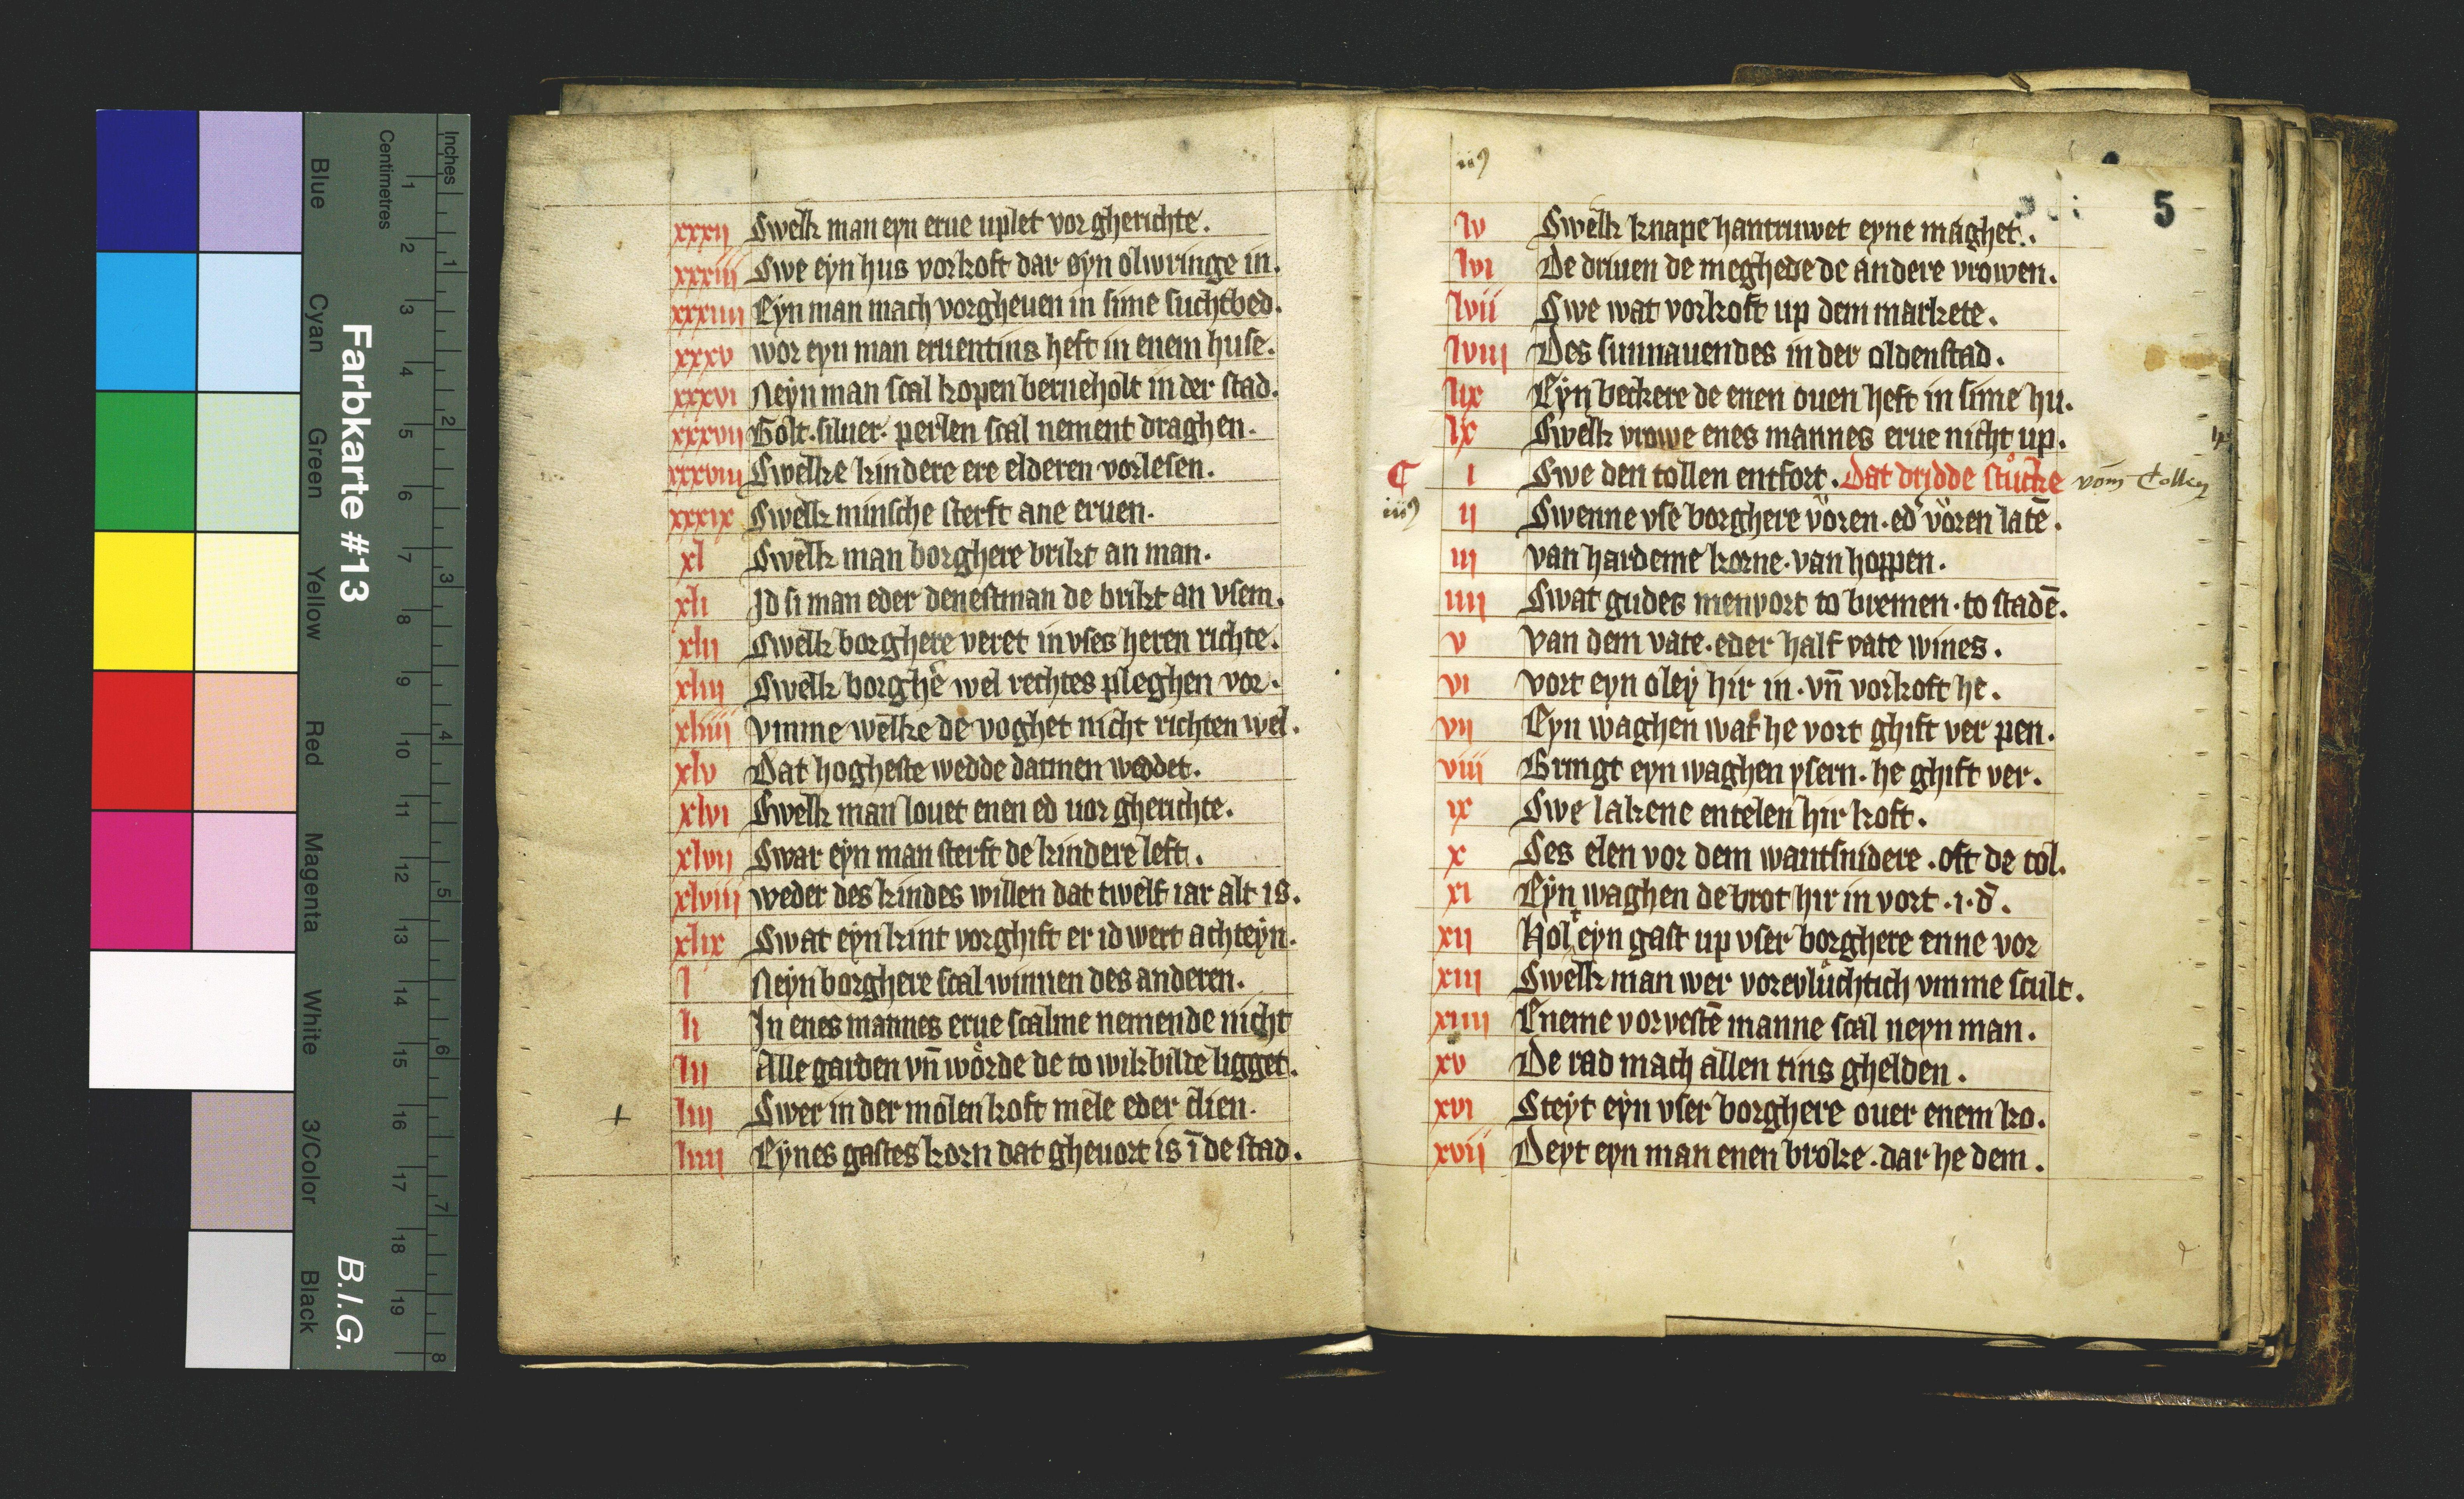 Inches
Centimetres
1 2 3 4 5 6 7 8 9 10 11 12 13 14 15 16 17 18 19
1 2 3 4 5 6 7 8
Farbkarte #13
B.I.G.
Blue
Cyan
Green
Yellow
Red
Magenta
White
3/Color
Black
xxxij Swelk man eyn erue uplet vor gherichte.
xxxiij Swe eyn hus vorkoft dar eyn olwringe in.
xxxiiij Eyn man mach vorgheuen in sime suchtbed.
xxxv wor eyn man eruentins heft in enem huse.
xxxvi Neyn man scal kopen berneholt in der stad.
xxxvij Golt. siluer. perlen scal nement draghen.
xxxviij Swelke kindere ere elderen vorlesen.
xxxix Swelk minsche sterft ane eruen.
xl Swelk man borghere brikt an man.
xli Id si man eder denestman de brikt an vsem.
xlij Swelk borghere veret in vses heren richte.
xliij Swelk borghe wel rechtes pleghen vor.
xliiij vmme welke de voghet nicht richten wel.
xlv Dat hogheste wedde datmen weddet.
xlvi Swelk man louet enen ed uor gherichte.
xlvij Swar eyn man sterft de kindere left.
xlviij weder des kindes willen dat twelf iar alt is.
xlix Swat eyn kint vorghift er id wert achteyn.
l Neyn borghere scal winnen des anderen.
li In enes mannes erue scalme nemende nicht
lij Alle garden vn̄ wörde de to wikbilde ligget.
+ liij Swer in der molen koft mele eder clien.
liiij Eynes gastes korn dat gheuort is ī de stad.
5
lv Swelk knape hantruwet eyne maghet.
lvi De driuen de meghede de andere vrowen.
lvij Swe wat vorkoft up dem markete.
lviij Des sunnauendes in der oldenstad.
lix Eyn beckere de enen ouen heft in sime hu.
lx Swelk vrowe enes mannes erue nicht up.
¶ i Swe den tollen entfort. Dat dridde stücke vom Tollen
ij Swenne vse borghere vören. ed' vören latē.
iij van hardeme korne. van hoppen.
iiij Swat gudes menvort to bremen. to stadē.
v van dem vate. eder half vate wines.
vi vort eyn oley hir in. vn̄ vorkoft he.
vij Eyn waghen wat he vort ghift ver pen.
viij Bringt eyn waghen ysern. he ghift ver.
ix Swe lakene entelen hir koft.
x Ses elen vor dem wantsnidere. oft de tol.
xi Eyn waghen de brot hir in vort. i. d̄.
xij Holt eyn gast up vser borghere enne vor
xiij Swelk man wer vorevlüchtich vmme scult.
xiiij Eneme vorvestē manne scal neyn man.
xv De rad mach allen tins ghelden.
xvi Steyt eyn vser borghere ouer enem ko.
xvij Deyt eyn man enen broke. dar he dem.